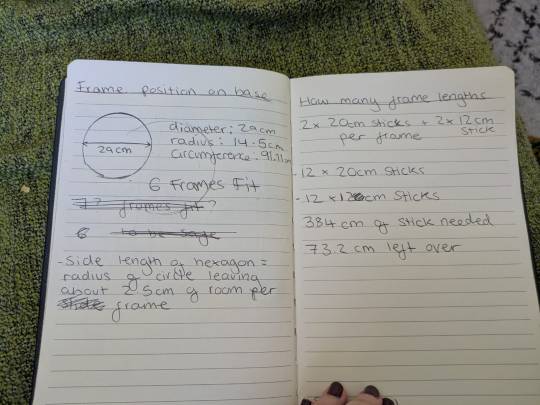 Frame position on base
29cm
diameter: 29cm
radius: 14.5cm
circumference: 91.11cm
6 Frames Fit
7? frames fit?
6 to be safe
- Side length of hexagon =
radius of circle leaving
about 2.5cm of room per
frame
How many frame lengths
2 x 20cm sticks + 2 x 12cm
stick
per frame
- 12 x 20cm sticks
- 12 x 12cm sticks
384 cm of stick needed
73.2 cm left over